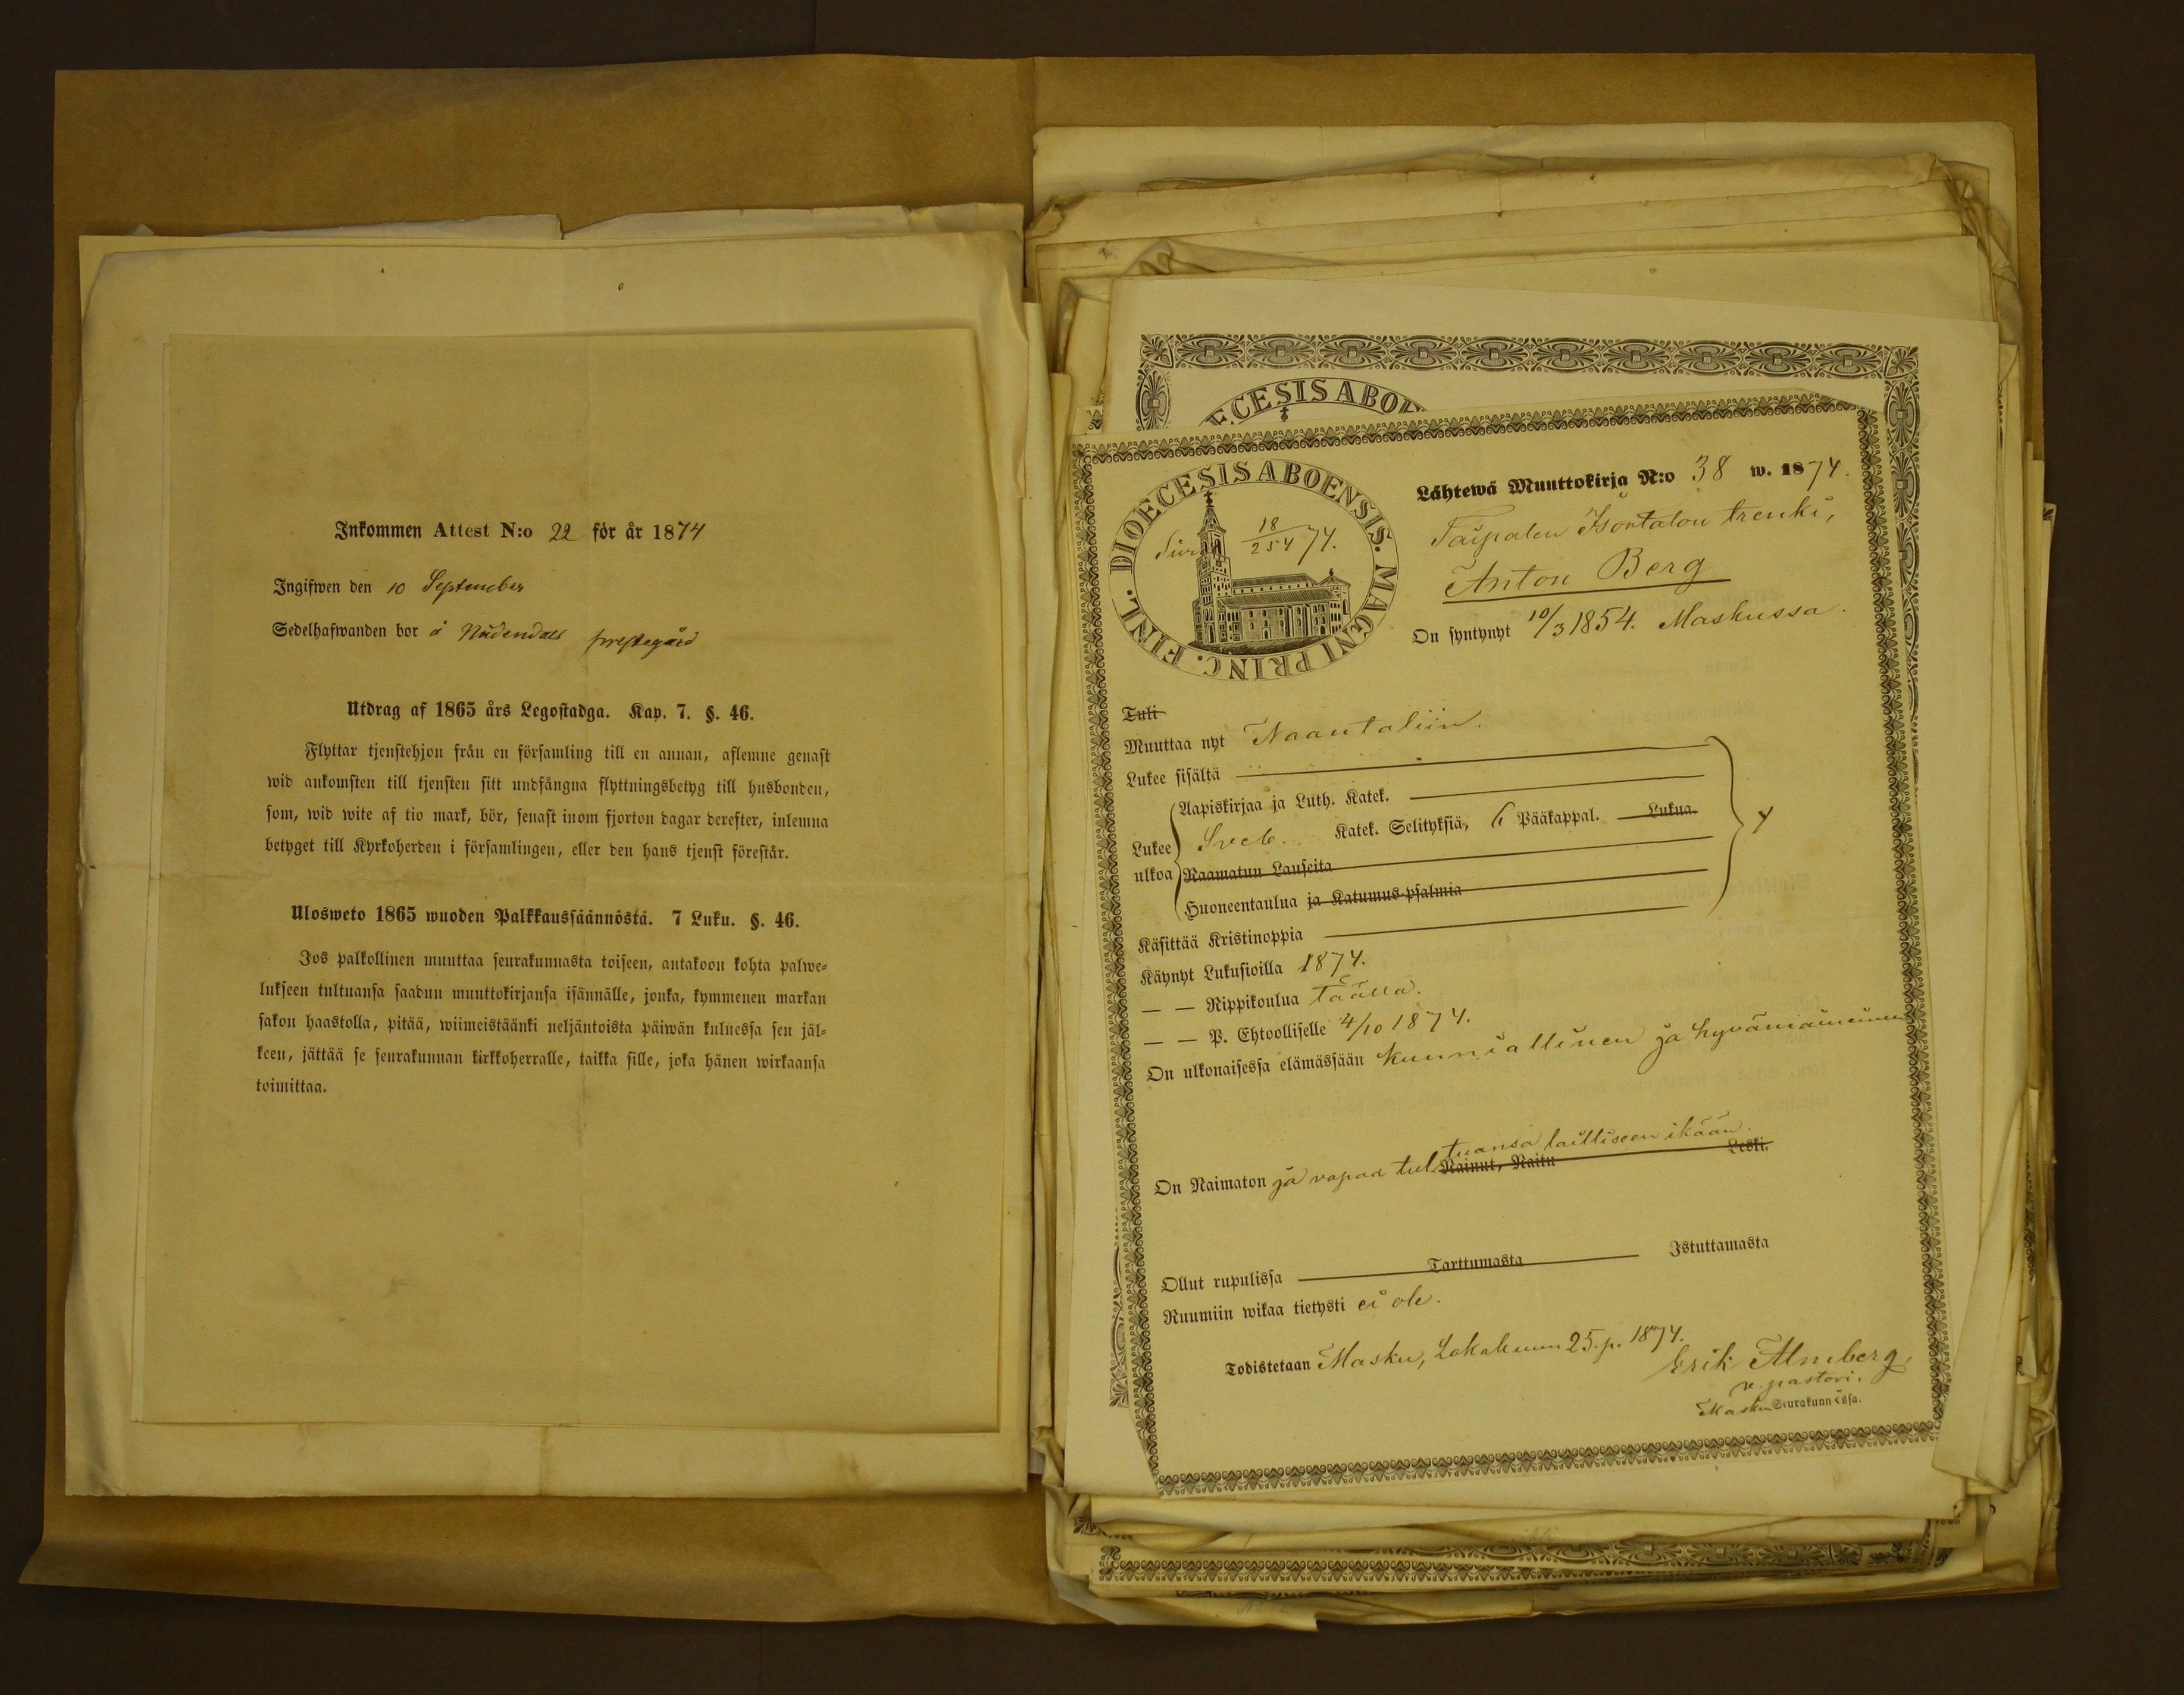 Inkommen Attest N:o 22 för år 1874
Ingifwen den 10 September
Sedelhafwanden bor å Nådendals prestegård
Utdrag af 1865 års Legostadga. Kap. 7. §. 46.
Flyttar tjenstehjon från en församling till en annan, aflemne genast
wid ankomsten till tjensten sitt undfångna flyttningsbetyg till husbonden,
som, wid wite af tio mark, bör, senast inom fjorton dagar derefter, inlemna
betyget till Kyrkoherden i församlingen, eller den hans tjenst förestår.
Ulosweto 1865 wuoden Palkkaussäännöstä. 7 Luku. §. 46.
Jos palkollinen muuttaa seurakunnasta toiseen, antakoon kohta palwe-
lukseen tultuansa saadun muuttokirjansa isännälle, jonka, kymmenen markan
sakon haastolla, pitää, wiimeistäänki neljäntoista päiwän kuluessa sen jäl-
keen, jättää se seurakunnan kirkkoherralle, taikka sille, joka hänen wirkaansa
toimittaa.
ECESIS ABOE
DIOECESIS ABOENSIS. MAGNI PRINC. FINL.
18
254 74.
Lähtewä Muuttokirja N:o 38 w. 1874.
Taipalen Isontalon trenki,
Anton Berg
On syntynyt 10/3 1854. Maskussa.
Tuli
Muuttaa nyt Naantaliin.
Lukee sisältä
Aapiskirjaa ja Luth. Katek.
Lukee ulkoa Sveb. Katek. Selityksiä, 6 Pääkappal. Lukua.
Raamatun Lauseita
Huoneentaulua ja Katumus-psalmia
Käsittää Kristinoppia
Käynyt Lukusioilla 1874.
— — Rippikoulua täällä.
— — P. Ehtoolliselle 4/10 1874.
On ulkonaisessa elämässään kunniallinen ja hyvämaineinen
On Naimaton ja vapaa tultuansa lailliseen ikään.
Nainut, Naitu Leski.
Ollut rupulissa Tarttumasta Istuttamasta
Ruumiin wikaa tietysti ei ole.
Todistetaan Masku, Lokakuun 25. p. 1874.
Erik Almberg,
v. pastori.
Maskun Seurakunnassa.